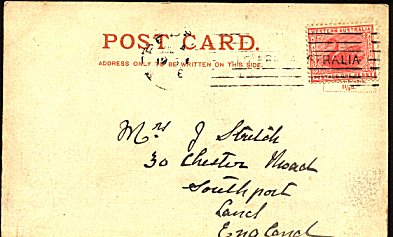 WESTERN AUSTRALIA
POST CARD.
RALIA
ADDRESS ONLY TO BE WRITTEN ON THIS SIDE.
Mrs J Stretch
30 Chester Road
Southport
Lancs
England